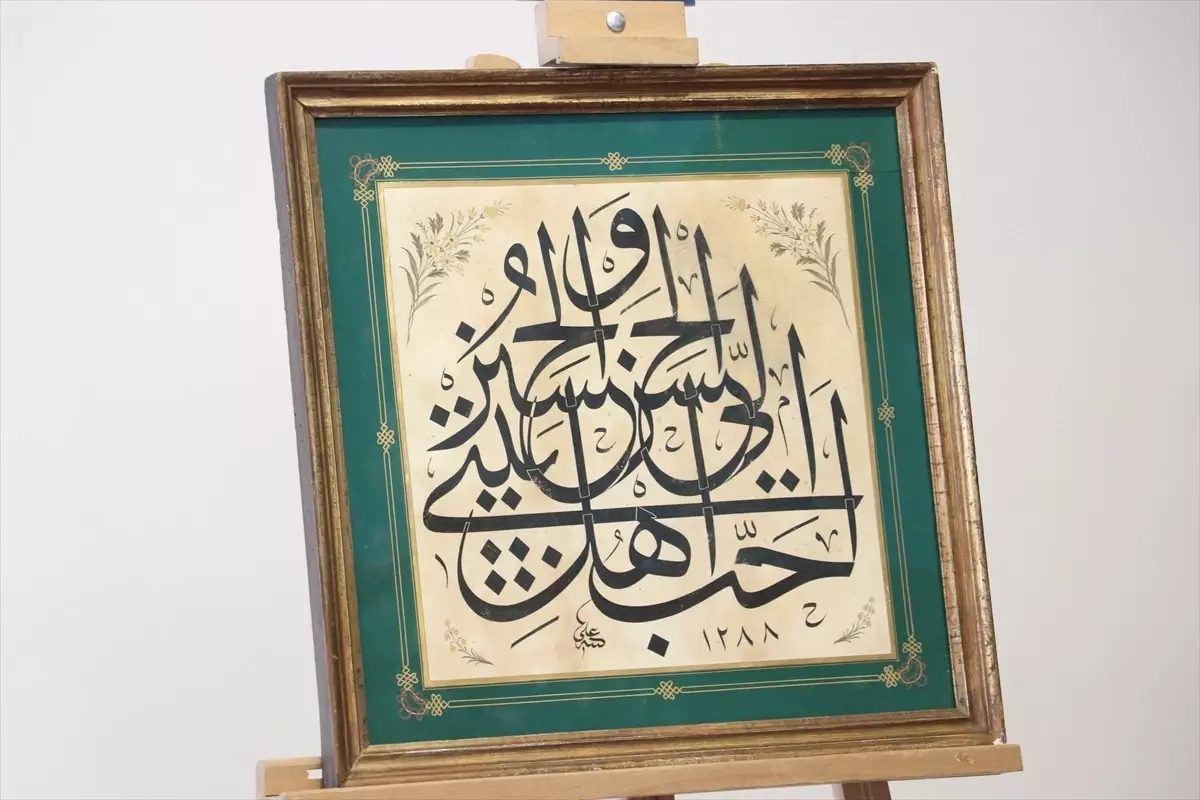 احب اهل بيتي
الي الحسن
و الحسين
علي
١٢٨٨